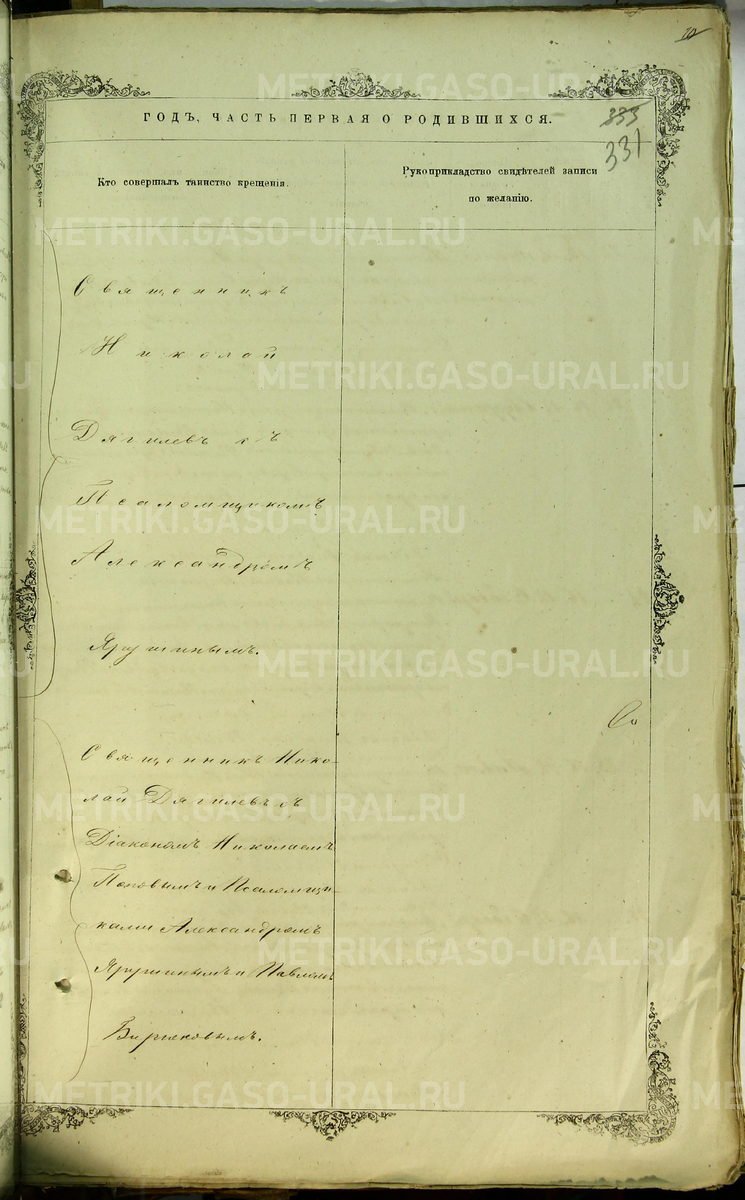 ГОДЪ, ЧАСТЬ ПЕРВАЯ О РОДИВШИХСЯ.
333
331
Кто совершалъ таинство крещенія.
Рукоприкладство свидѣтелей записи
по желанію.
Священникъ
Николай
Дягилевъ съ
Псаломщикомъ
Александромъ
Ярушинымъ.
Священникъ Нико-
лай Дягилевъ съ
Діакономъ Николаемъ
Поповымъ и Псаломщи-
ками Александромъ
Ярушинымъ и Павломъ
Бирюковымъ.
METRIKI.GASO-URAL.RU